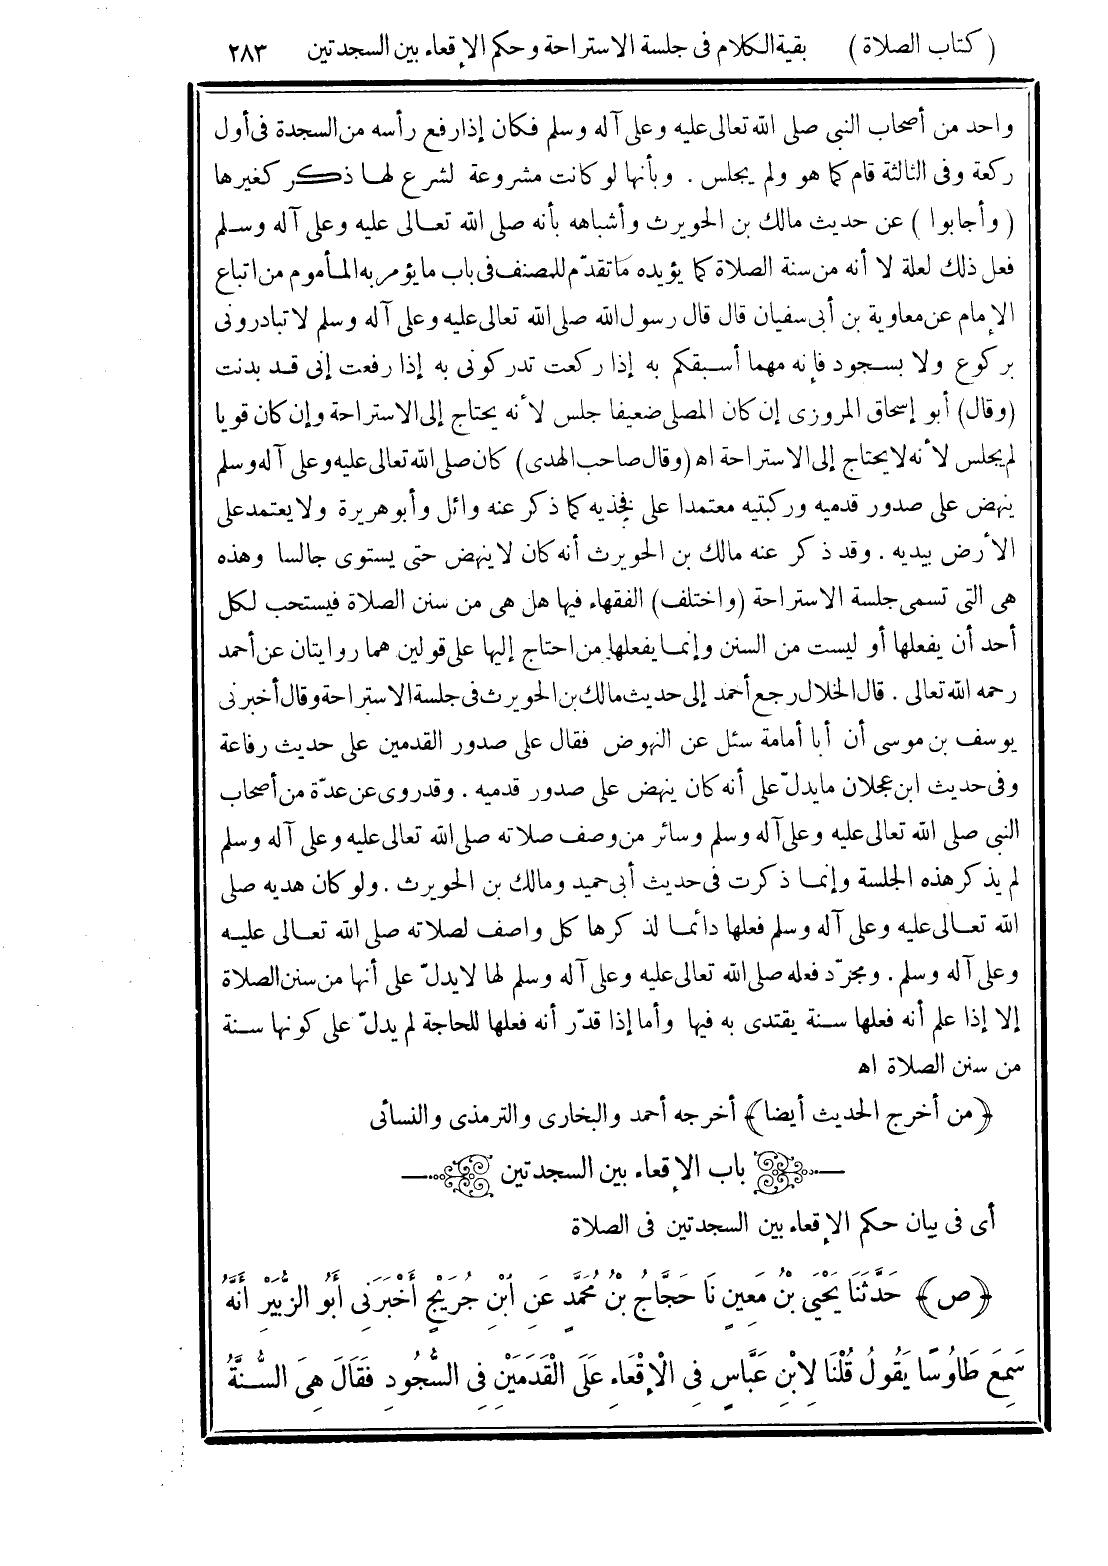 ( كتاب الصلاة ) بقية الكلام فى جلسة الاستراحة وحكم الإقعاء بين السجدتين ٢٨٣
واحد من أصحاب النبى صلى الله تعالى عليه وعلى آله وسلم فكان إذا رفع رأسه من السجدة فى أول
ركعة وفى الثالثة قام كما هو ولم يجلس . وبأنها لو كانت مشروعة لشرع لها ذكر كغيرها
( وأجابوا ) عن حديث مالك بن الحويرث وأشباهه بأنه صلى الله تعالى عليه وعلى آله وسلم
فعل ذلك لعلة لا أنه من سنة الصلاة كما يؤيده ما تقدّم للمصنف فى باب ما يؤمر به المأموم من اتباع
الإمام عن معاوية بن أبى سفيان قال قال رسول الله صلى الله تعالى عليه وعلى آله وسلم لا تبادرونى
بركوع ولا بسجود فإنه مهما أسبقكم به إذا ركعت تدركونى به إذا رفعت إنى قد بدنت
(وقال) أبو إسحاق المروزى إن كان المصلى ضعيفا جلس لأنه يحتاج إلى الاستراحة وإن كان قويا
لم يجلس لأنه لا يحتاج إلى الاستراحة اه (وقال صاحب الهدى) كان صلى الله تعالى عليه وعلى آله وسلم
ينهض على صدور قدميه وركبتيه معتمدا على فخذيه كما ذكر عنه وائل وأبو هريرة ولا يعتمد على
الأرض بيديه . وقد ذكر عنه مالك بن الحويرث أنه كان لا ينهض حتى يستوى جالسا وهذه
هى التى تسمى جلسة الاستراحة (واختلف) الفقهاء فيها هل هى من سنن الصلاة فيستحب لكل
أحد أن يفعلها أو ليست من السنن وإنما يفعلها من احتاج إليها على قولين هما روايتان عن أحمد
رحمه الله تعالى . قال الخلال رجع أحمد إلى حديث مالك بن الحويرث فى جلسة الاستراحة وقال أخبرنى
يوسف بن موسى أن أبا أمامة سئل عن النهوض فقال على صدور القدمين على حديث رفاعة
وفى حديث ابن عجلان ما يدلّ على أنه كان ينهض على صدور قدميه . وقد روى عن عدّة من أصحاب
النبى صلى الله تعالى عليه وعلى آله وسلم وسائر من وصف صلاته صلى الله تعالى عليه وعلى آله وسلم
لم يذكر هذه الجلسة وإنما ذكرت فى حديث أبى حميد ومالك بن الحويرث . ولو كان هديه صلى
الله تعالى عليه وعلى آله وسلم فعلها دائما لذكرها كل واصف لصلاته صلى الله تعالى عليه
وعلى آله وسلم . ومجرّد فعله صلى الله تعالى عليه وعلى آله وسلم لها لا يدلّ على أنها من سنن الصلاة
إلا إذا علم أنه فعلها سنة يقتدى به فيها وأما إذا قدّر أنه فعلها للحاجة لم يدلّ على كونها سنة
من سنن الصلاة اه
﴿من أخرج الحديث أيضا﴾ أخرجه أحمد والبخارى والترمذى والنسائى
باب الإقعاء بين السجدتين
أى فى بيان حكم الإقعاء بين السجدتين فى الصلاة
﴿ص﴾ حَدَّثَنَا يَحْيَى بْنُ مَعِينٍ نَا حَجَّاجُ بْنُ مُحَمَّدٍ عَنِ ابْنِ جُرَيْجٍ أَخْبَرَنِى أَبُو الزُّبَيْرِ أَنَّهُ
سَمِعَ طَاوُسًا يَقُولُ قُلْنَا لِابْنِ عَبَّاسٍ فِى الْإِقْعَاءِ عَلَى الْقَدَمَيْنِ فِى السُّجُودِ فَقَالَ هِىَ السُّنَّةُ